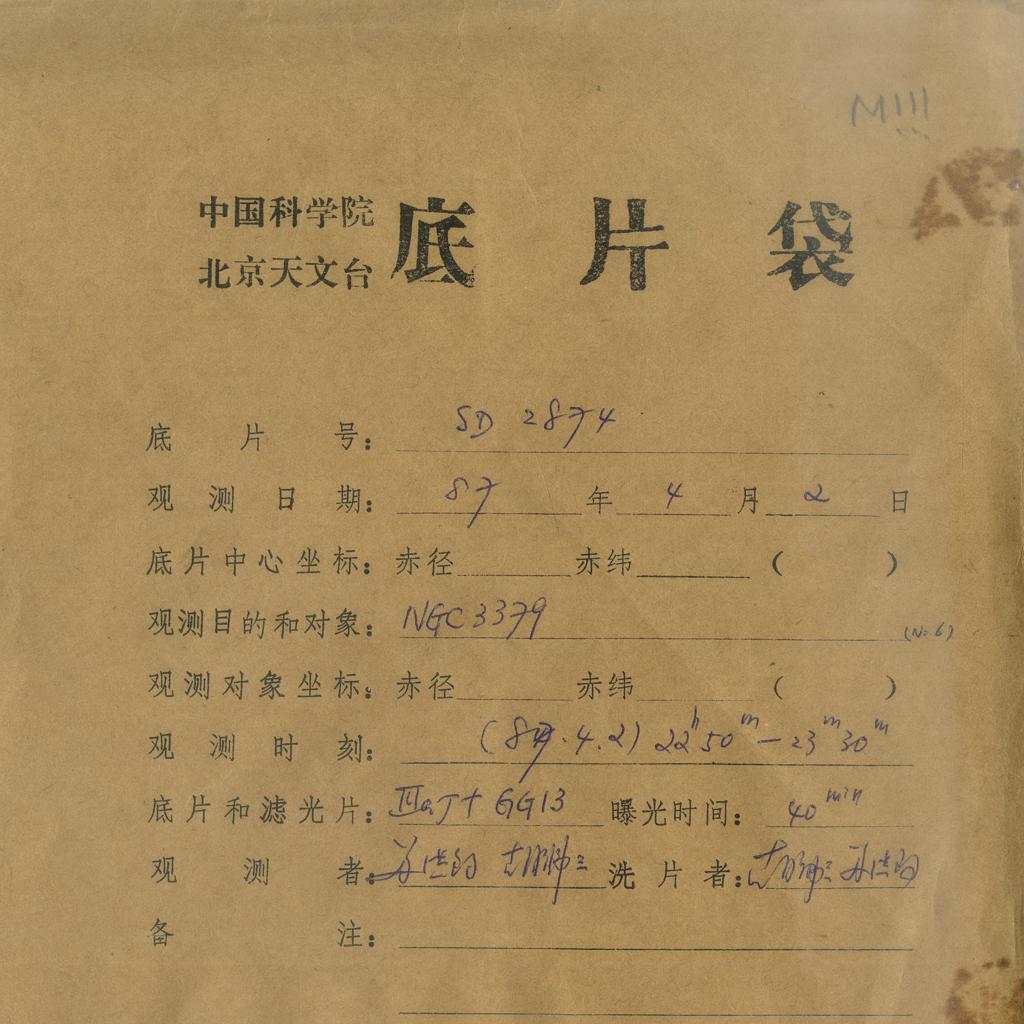 M!!!
中国科学院
北京天文台
底片袋
底片号: SD 2874
观测日期: 87年4月2日
底片中心坐标: 赤径 赤纬 ( )
观测目的和对象: NGC 3379 (No. 6)
观测对象坐标: 赤径 赤纬 ( )
观测时刻: (87.4.2) 22h50m—23m30m
底片和滤光片: IIIaJ+GG13 曝光时间: 40min
观测者: 洗片者:
备注: